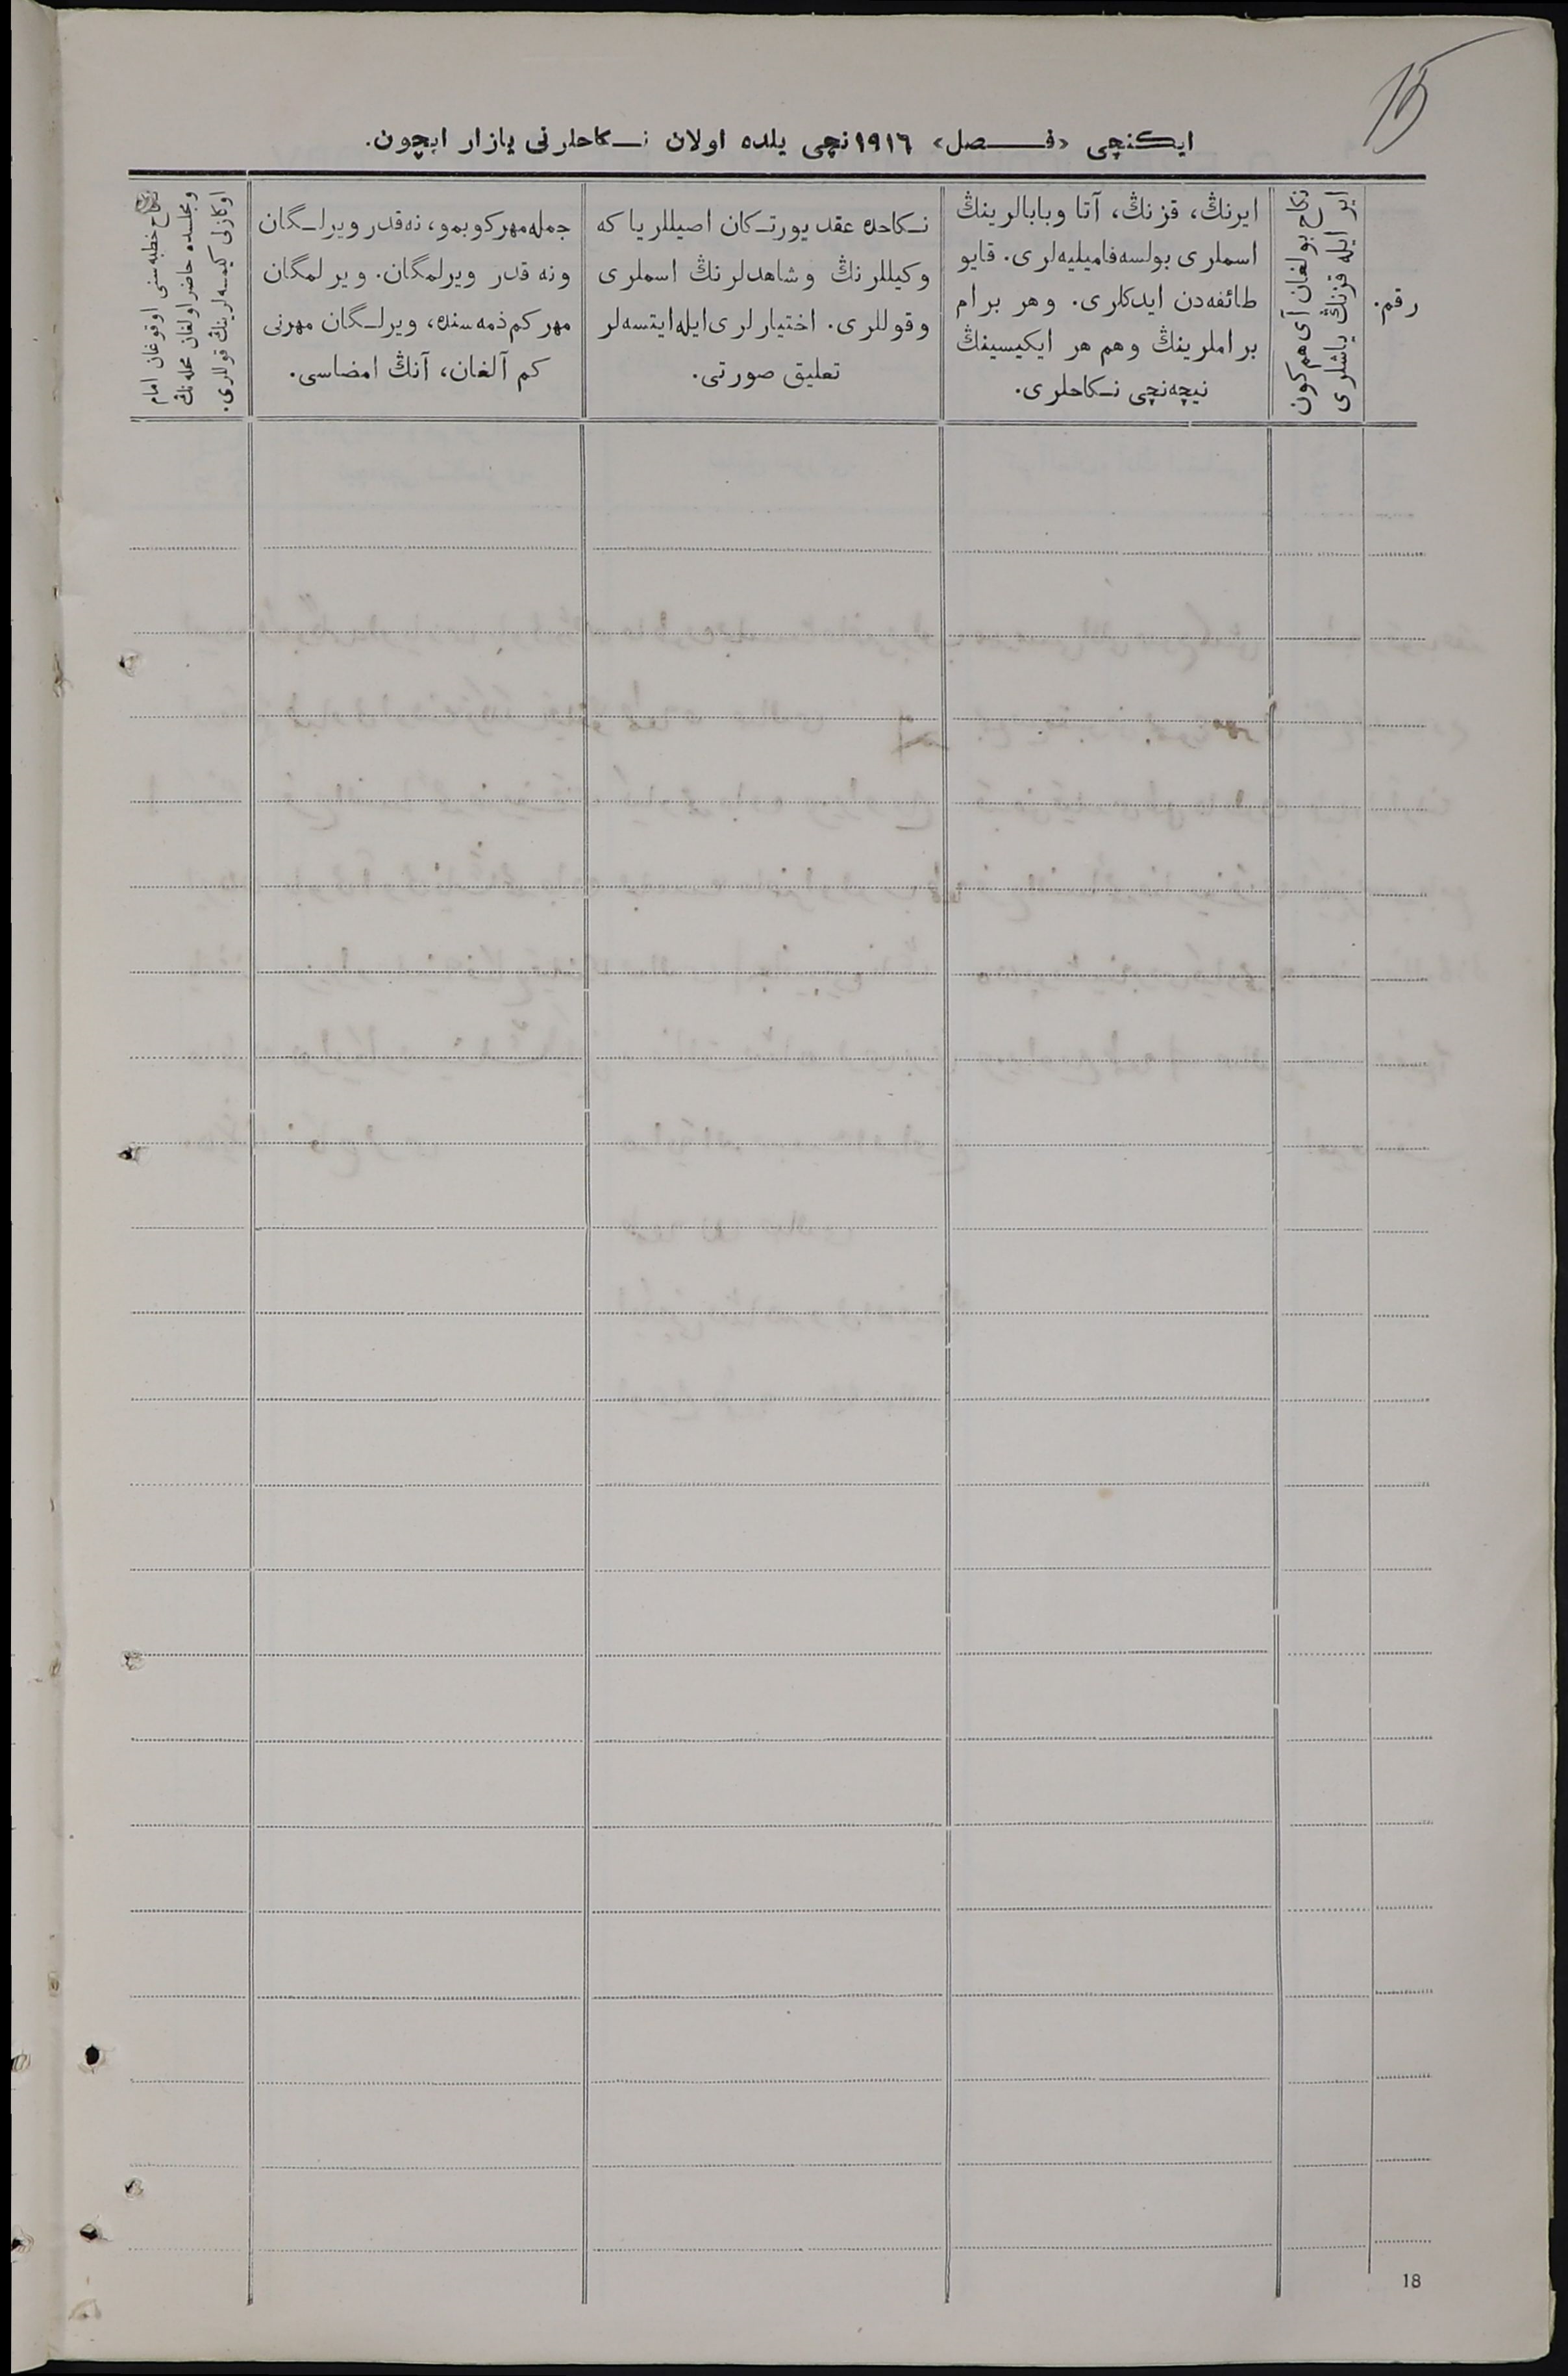 15
ایکنچی «فصل» ۱۹۱٦نچی یلده اولان نکاحلرنی یازار ایچون.
رقم.
نکاح بولغان آی هم کون
ایر ایله قزنڭ یاشلری
ایرنڭ، قزنڭ، آتا وبابالرینڭ
اسملری بولسه فامیلیه‌لری. قایو
طائفه‌دن ایدکلری. وهر برام
براملرینڭ وهم هر ایکیسینڭ
نیچه‌نچی نکاحلری.
نکاحده عقد یورتکان اصیللر یا که
وکیللرنڭ وشاهدلرنڭ اسملری
وقوللری. اختیارلری ایله ایتسه‌لر
تعلیق صورتی.
جمله مهر کوبمو، نه‌قدر ویرلگان
ونه قدر ویرلمگان. ویرلمگان
مهر کم ذمه‌سنده، ویرلگان مهرنی
کم آلغان، آنڭ امضاسی.
نکاح خطبه‌سنی اوقوغان امام
ومجلسده حاضر اولغان محله‌نڭ
اوکازلی کیمسه‌لرینڭ قوللری.
18